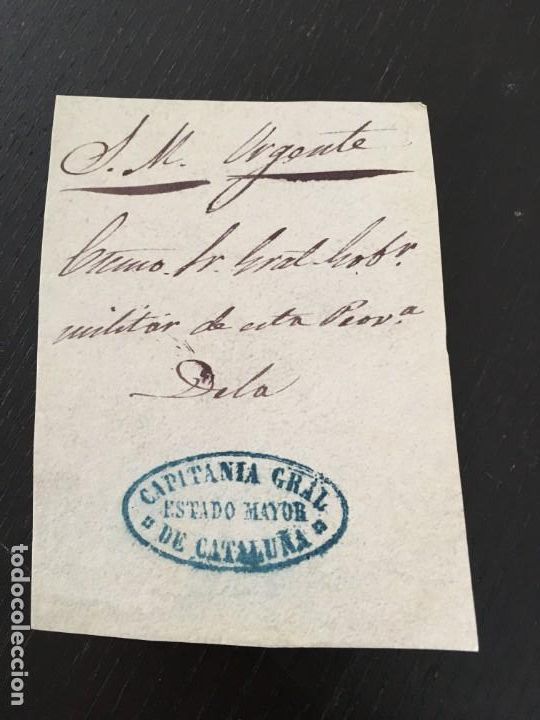 S. M. Urgente
Exmo. Sr. Gral. Gobr.
militar de esta Prova
Dela
CAPITANIA GRAL
ESTADO MAYOR
DE CATALUÑA
todocoleccion